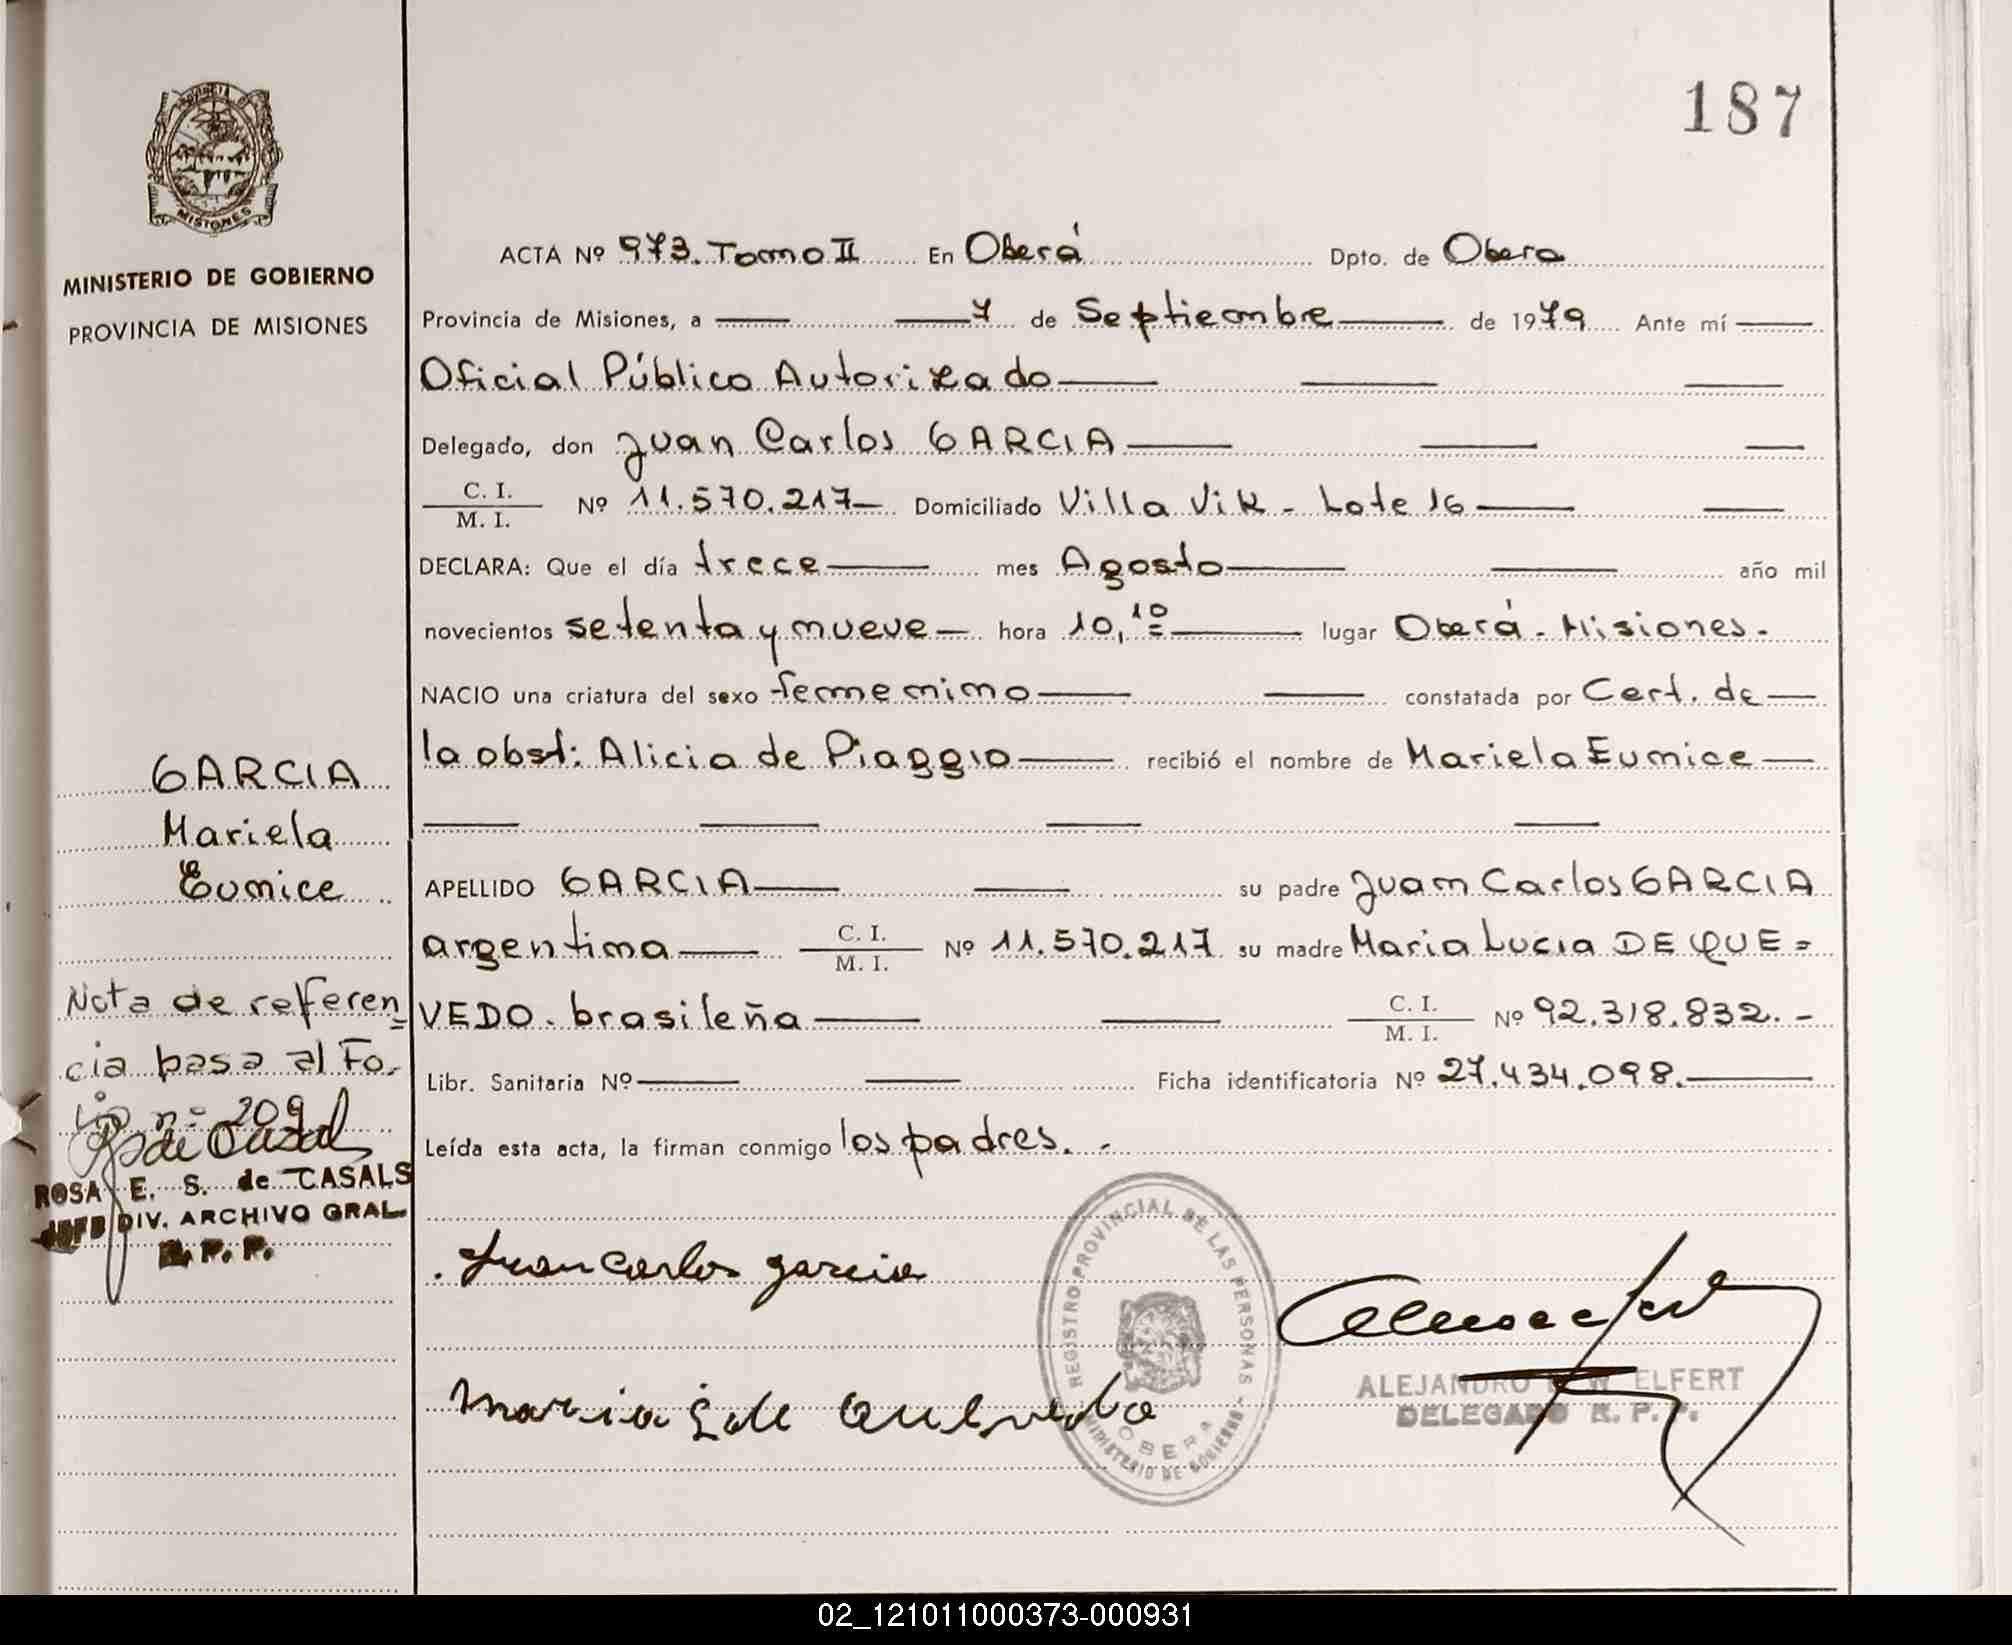 187
PROVINCIA DE
MISIONES
MINISTERIO DE GOBIERNO
PROVINCIA DE MISIONES
ACTA Nº 973. Tomo II En Oberá Dpto. de Obera
Provincia de Misiones, a 7 de Septiembre de 1979 Ante mí
Oficial Público Autorizado
Delegado, don Juan Carlos GARCIA
C. I.
M. I. Nº 11.570.217 Domiciliado Villa Vik - Lote 16
DECLARA: Que el día trece mes Agosto año mil
novecientos setenta y nueve hora 10,10 lugar Oberá - Misiones.
NACIO una criatura del sexo femenino constatada por Cert. de
la obst: Alicia de Piaggio recibió el nombre de Mariela Eunice
APELLIDO GARCIA su padre Juan Carlos GARCIA
argentina C. I. M. I. Nº 11.570.217 su madre Maria Lucia DE QUE=
VEDO. brasileña C. I. M. I. Nº 92.318.832.-
Libr. Sanitaria Nº Ficha identificatoria Nº 27.434.098.
Leída esta acta, la firman conmigo los padres.-
GARCIA
Mariela
Eunice
Nota de referen=
cia pasa al Fo-
lio nº 209
ROSA E. S. de CASALS
JEFE DIV. ARCHIVO GRAL.
R. P. P.
Juan Carlos garcia
Maria L de Quevedo
REGISTRO PROVINCIAL DE LAS PERSONAS -
MINISTERIO DE GOBIERNO
OBERA
ALEJANDRO ELFERT
DELEGADO R. P. P.
02_121011000373-000931